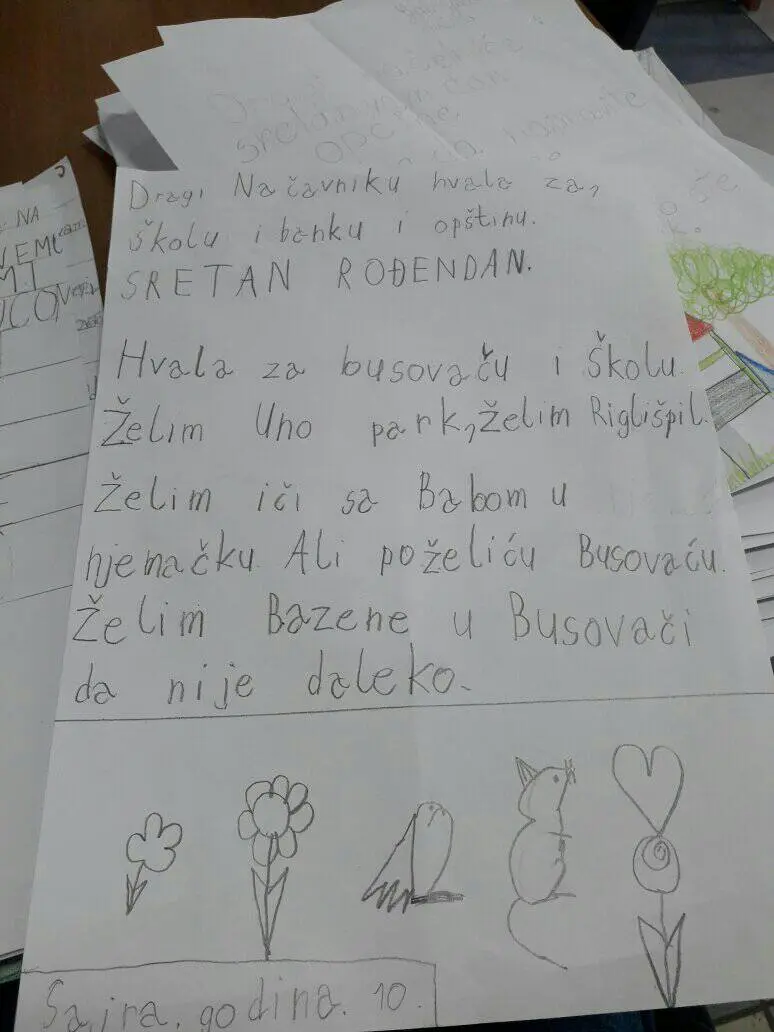 Dragi Načavniku hvala za,
školu i banku i opštinu.
SRETAN ROĐENDAN.
Hvala za busovaču i školu.
Želim Uno park, želim Riglišpil.
želim iči sa Babom u
njemačku. Ali poželiću Busovaću.
Želim Bazene u Busovači
da nije daleko.
Sajra. godina. 10.
NA